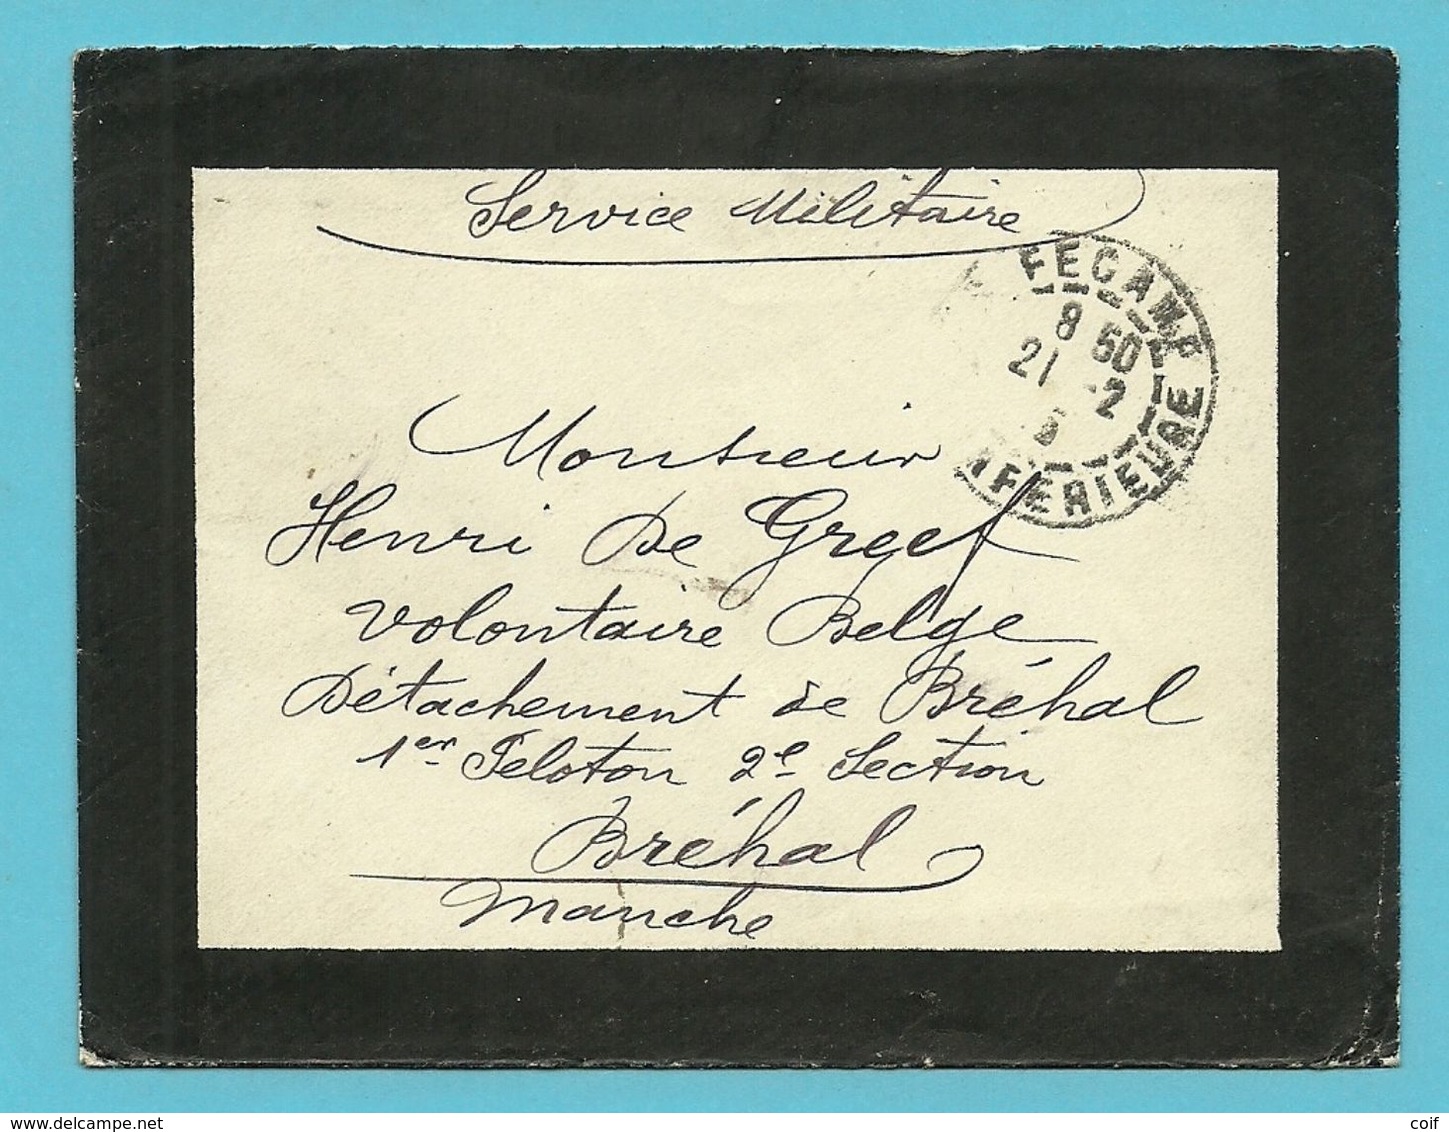 Service Militaire
FECAMP
8 50
21 -2
FERIEURE
Monsieur
Henri De Greef
Volontaire Belge
Détachement de Bréhal
1er Peloton 2e Section
Bréhal
Manche
delcampe.net
coif